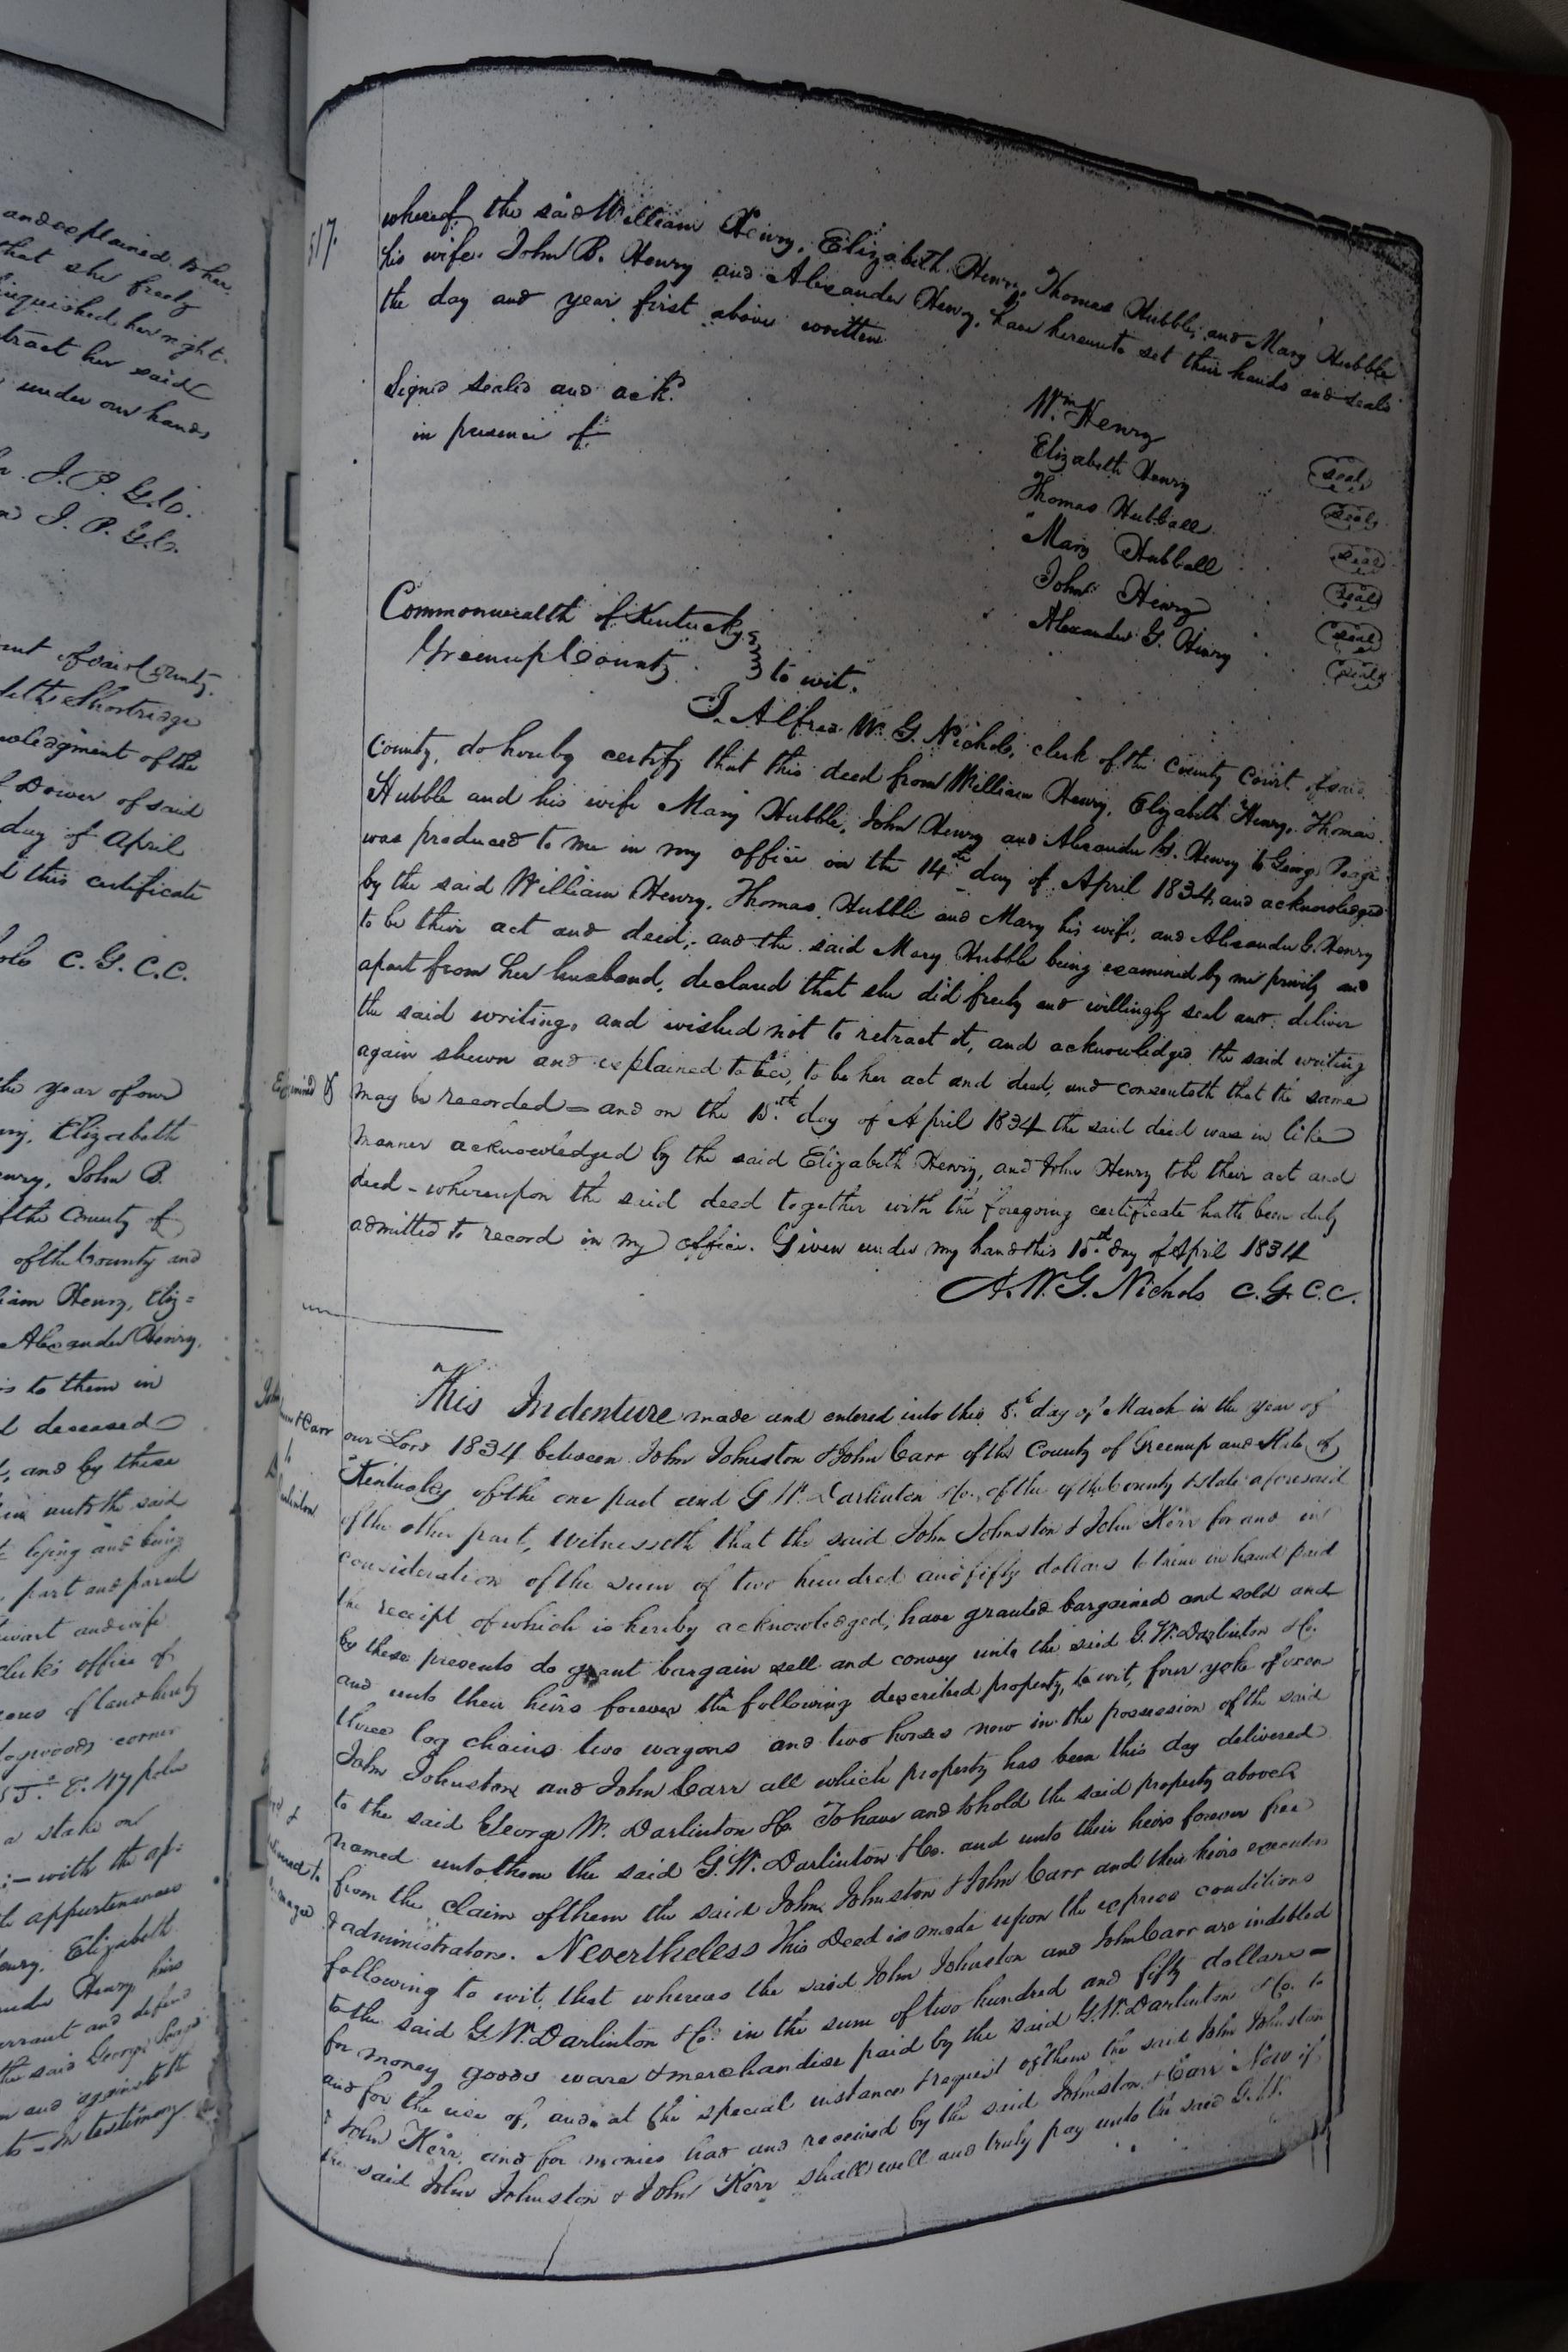 and explained to her
that she freely
linquished her right
tract her said
under our hands
J. P. G. C.
J. P. G. C.
of said County
Shortridge
acknowledgment of the
Dower of said
day of April
this certificate
C. G. C. C.
the year of our
Elizabeth
Henry, John B.
of the County of
of the County and
William Henry, Eliz=
Alexander Henry,
is to them in
deceased
and by these
unto the said
lying and being
part and parcel
and wife
clerk's office of
of land
corner
E. 47 poles
a stake on
with the ap=
appurtenances
Henry, Elizabeth
Henry heirs
warrant and defend
the said George Poage
and against the
In testimony
517.
whereof the said William Henry, Elizabeth Henry, Thomas Hubble, and Mary Hubble
his wife John B. Henry and Alexander Henry, have hereunto set their hands and seals
the day and year first above written
Signed sealed and ack.d
in presence of
Wm Henry seal
Elizabeth Henry seal
Thomas Hubball seal
Mary Hubball seal
John Henry seal
Alexander G. Henry seal
Commonwealth of Kentucky
Greenup County } to wit.
I. Alfred W. G. Nichols, clerk of the County Court of said
County, do hereby certify that this deed from William Henry, Elizabeth Henry, Thomas
Hubble and his wife Mary Hubble, John Henry and Alexander G. Henry to George Poage
was produced to me in my office on the 14th day of April 1834, and acknowledged
by the said William Henry, Thomas Hubble and Mary his wife, and Alexander G. Henry
to be their act and deed, and the said Mary Hubble being examined by me privily and
apart from her husband, declared that she did freely and willingly seal and deliver
the said writing, and wished not to retract it, and acknowledged the said writing
again shewn and explained to her, to be her act and deed, and consenteth that the same
may be recorded = and on the 15th day of April 1834 the said deed was in like
manner acknowledged by the said Elizabeth Henry, and John Henry to be their act and
deed - whereupon the said deed together with the foregoing certificate hath been duly
admitted to record in my office. Given under my hand this 15th day of April 1834
A. W. G. Nichols C. G. C. C.
This Indenture made and entered into this 8th day of March in the year of
our Lord 1834 between John Johnston & John Carr of the County of Greenup and State of
Kentucky of the one part and G W. Darlinton & Co. of the of the County & state aforesaid
of the other part, Witnesseth that the said John Johnston & John Kerr for and in
consideration of the sum of two hundred and fifty dollars to them in hand paid
the receipt of which is hereby acknowledged, have granted bargained and sold and
by these presents do grant bargain sell and convey unto the said G. W. Darlinton & Co.
and unto their heirs forever the following described property, to wit, four yoke of oxen
three log chains two wagons and two horses now in the possession of the said
John Johnston and John Carr all which property has been this day delivered
to the said George W. Darlinton & Co. To have and to hold the said property above
named unto them the said G. W. Darlinton & Co. and unto their heirs forever free
from the claim of them the said John Johnston & John Carr and their heirs executors
& administrators. Nevertheless This Deed is made upon the express conditions
following to wit, that whereas the said John Johnston and John Carr are indebted
to the said G. W. Darlinton & Co. in the sum of two hundred and fifty dollars =
for money goods ware & merchandise paid by the said G. W. Darlinton & Co. to
and for the use of, and at the special instance & request of them the said John Johnston
& John Kerr, and for monies had and received by the said Johnston & Carr Now if
the said John Johnston & John Kerr shall well and truly pay unto the said G. W.